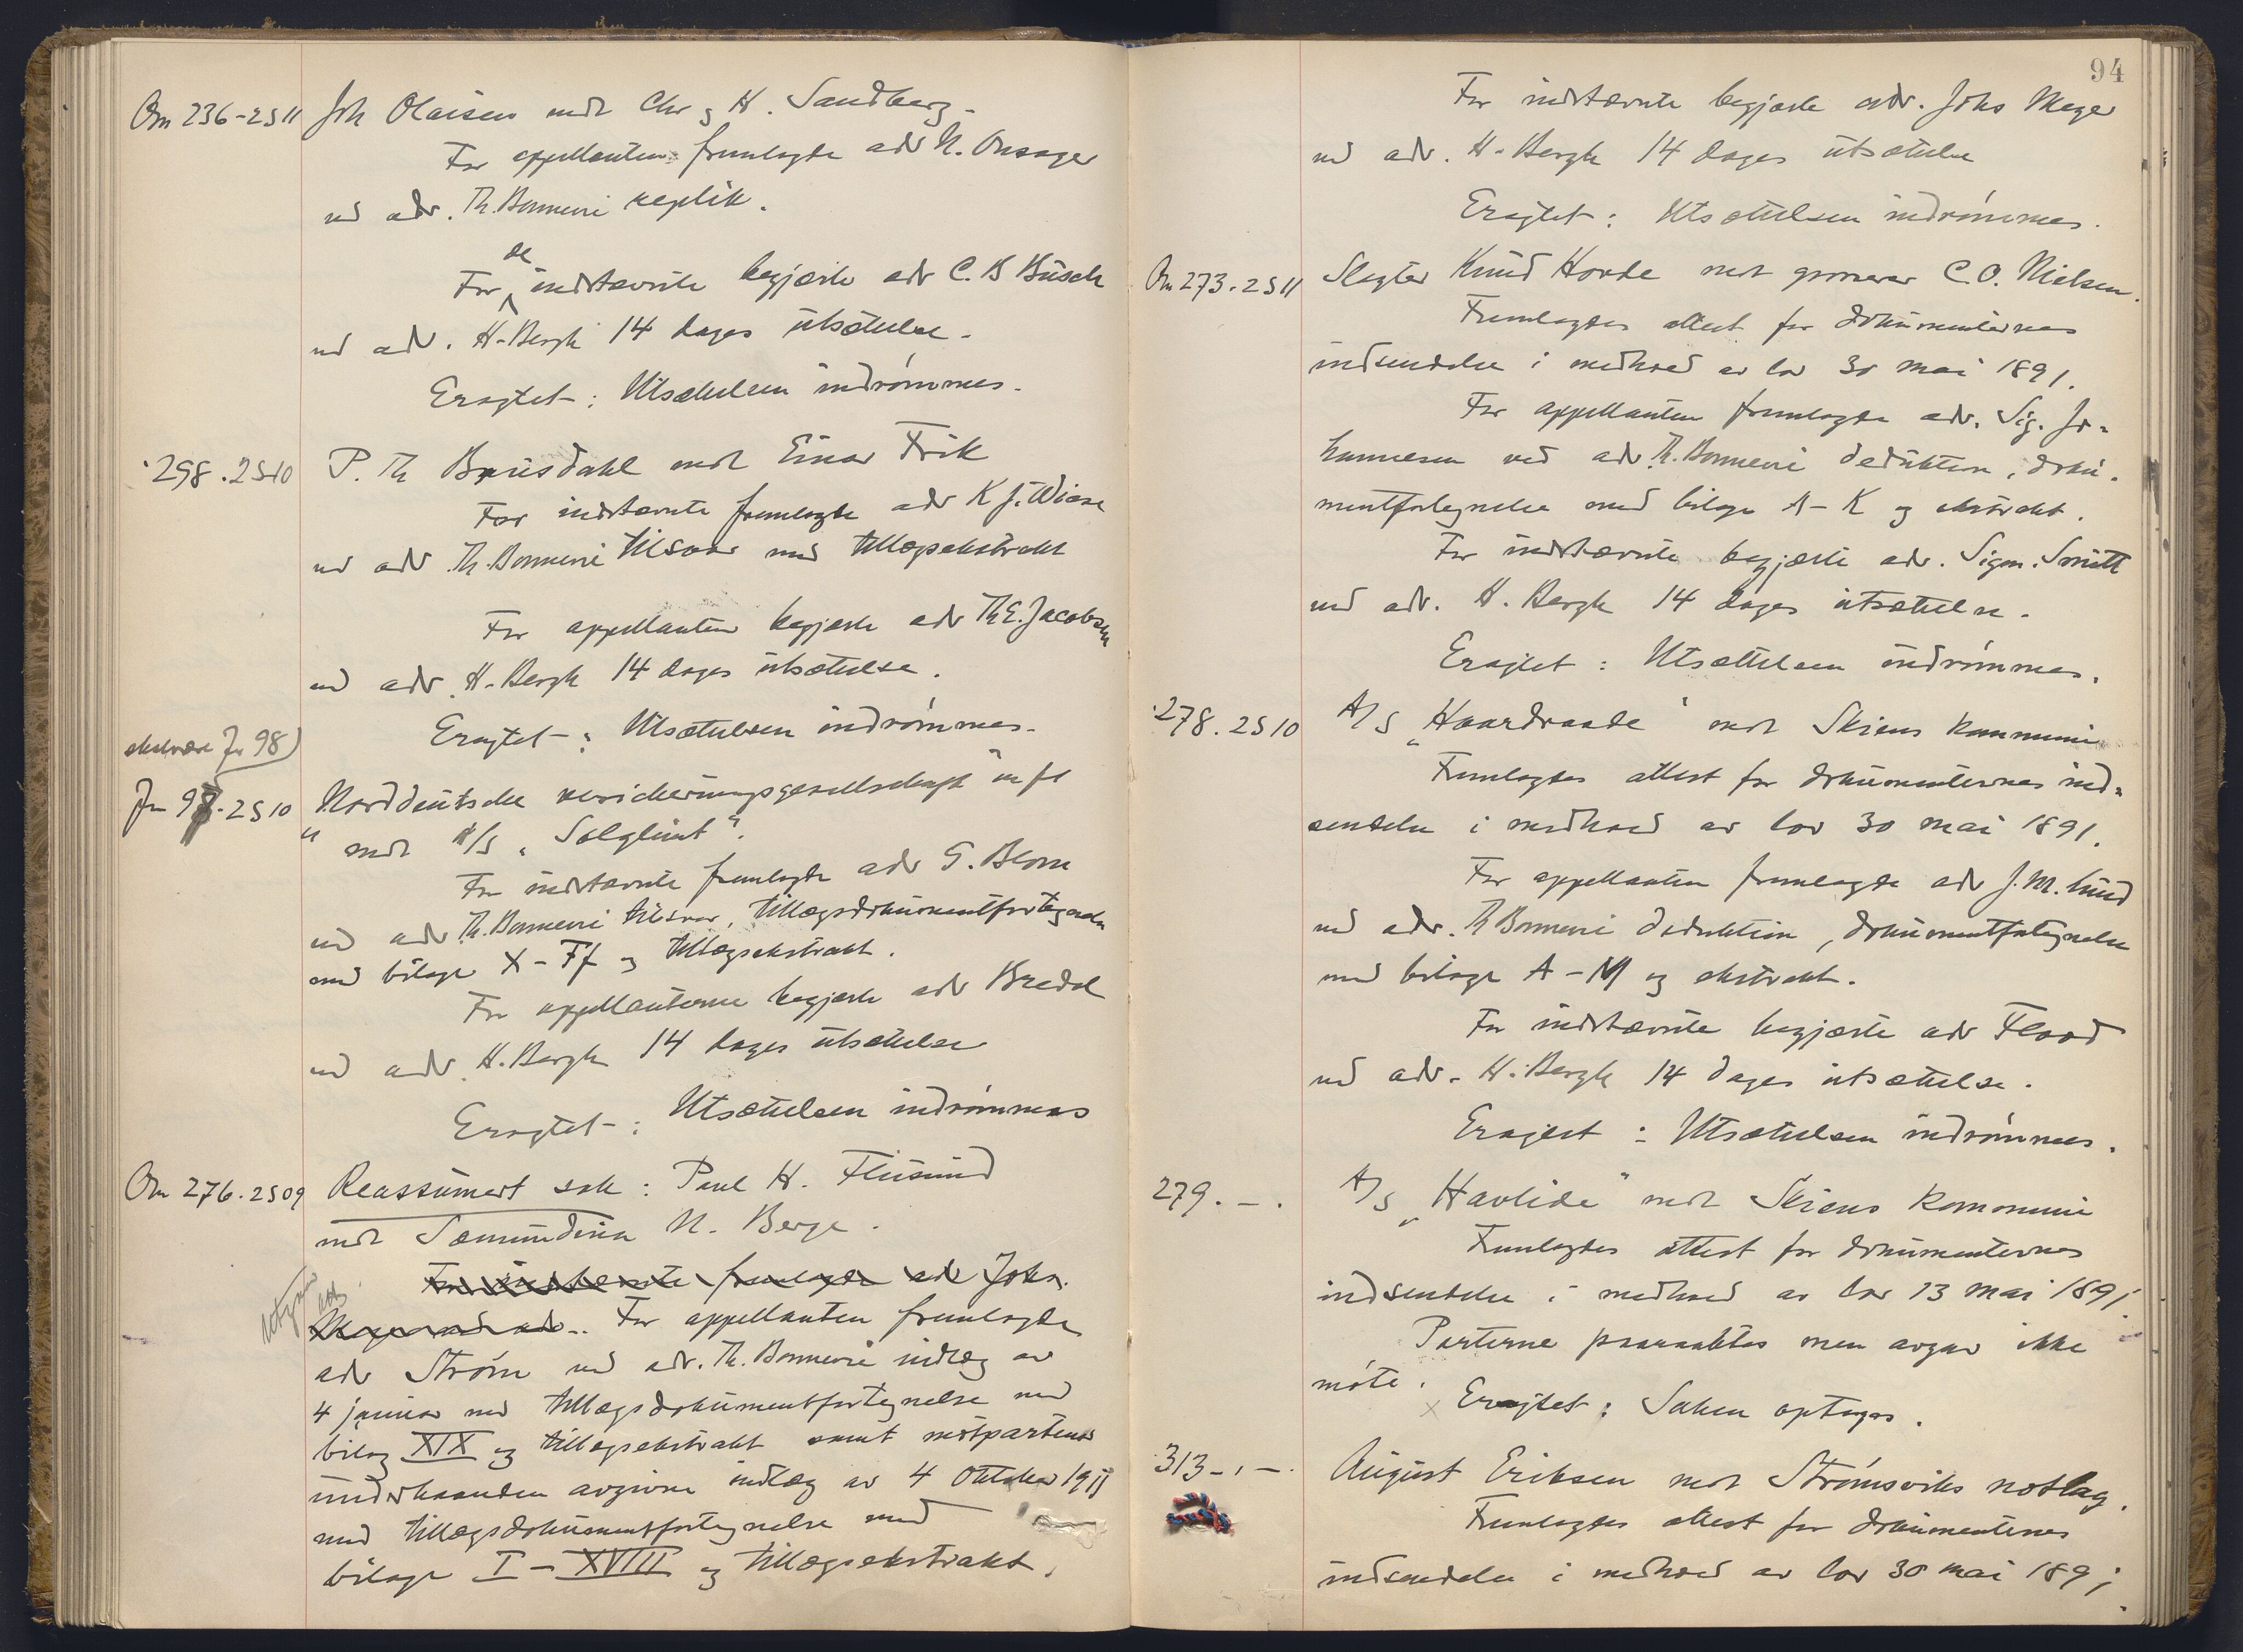 Om 236-2511 Joh Olaisen mot Chr & H. Sandberg.
For appellanten fremlagde adv N. Onsager
ved adv. Th. Bonnevi replik.
de
For indstevnte begjærte adv C. B Büsch
ved adv. H. Bergh 14 dages utsættelse.
Eragtet: Utsættelsen indrømmes.
298.2510 P. Th Brusdahl mot Einar Frik
For indstevnte fremlagde adv K J. Wiese
ved adv Th. Bonnevi tilsvar med tillægsekstrakt
For appellanten begjærte adv Th E. Jacobsen
ved adv. H. Bergh 14 dages utsættelse.
Eragtet: Utsættelsen indrømmes.
Jr 98)
Jr 98.2510 Norddeutsche versicherungsgesellschaft m fl
mot A/S "Solglimt".
For indstevnte fremlagde adv G. Blom
ved adv Th. Bonnevi tilsvar, tillægsdokumentfortegnelse
med bilage X-Ff og tillægsekstrakt.
For appellanterne begjærte adv Bredal
ved adv. H. Bergh 14 dages utsættelse
Eragtet: Utsættelsen indrømmes
Om 276.2509 Reassumert sak: Paul H. Flusund
mot Sæmundina N. Berge.
For indstævnte fremlagde adv Johs.
Meyer ved adv. For appellanten fremlagde
adv Strøm ved adv. Th. Bonnevi indlæg av
4 januar med tillægsdokumentfortegnelse med
bilag XIX og tillægsekstrakt samt motpartens
underhaanden avgivne indlæg av 4 oktober 1911
med tillægsdokumentfortegnelse med
bilage I-XVIII og tillægsekstrakt.
94
For indstævnte begjærte adv. Johs Meyer
ved adv. H. Bergh 14 dages utsættelse
Eragtet: Utsættelsen indrømmes.
Om 273.2511 Slagter Knud Hovde mot grosserer C.O. Nielsen.
Fremlagdes attest for dokumenternes
indsendelse i medhold av lov 30 mai 1891.
For appellanten fremlagde adv. Sig. Jo-
hannesen ved adv Th. Bonnevi deduktion, doku-
mentfortegnelse med bilage A-K og ekstrakt.
For indstævnte begjærte adv. Sigm. Smitt
ved adv. H. Bergh 14 dages utsættelse.
Eragtet: Utsættelsen indrømmes.
278.2510 A/S "Haardraade" mot Skiens kommune
Fremlagdes attest for dokumenternes ind-
sendelse i medhold av lov 30 mai 1891.
For appellanten fremlagde adv J. M. Lund
ved adv. Th Bonnevi deduktion, dokumentfortegnelse
med bilage A-M og ekstrakt.
For indstævnte begjærte adv Flood
ved adv. H. Bergh 14 dages utsættelse.
Eragtet: Utsættelsen indrømmes.
279. - . A/S "Havlide" mot Skiens kommune
Fremlagdes attest for dokumenternes
indsendelse i medhold av lov 13 mai 1891.
Parterne paaraabtes men avgav ikke
møte.
x Eragtet: Saken optages.
313 - , - . August Eriksen mot Strømsviks notlag.
Fremlagdes attest for dokumenternes
indsendelse i medhold av lov 30 mai 1891;